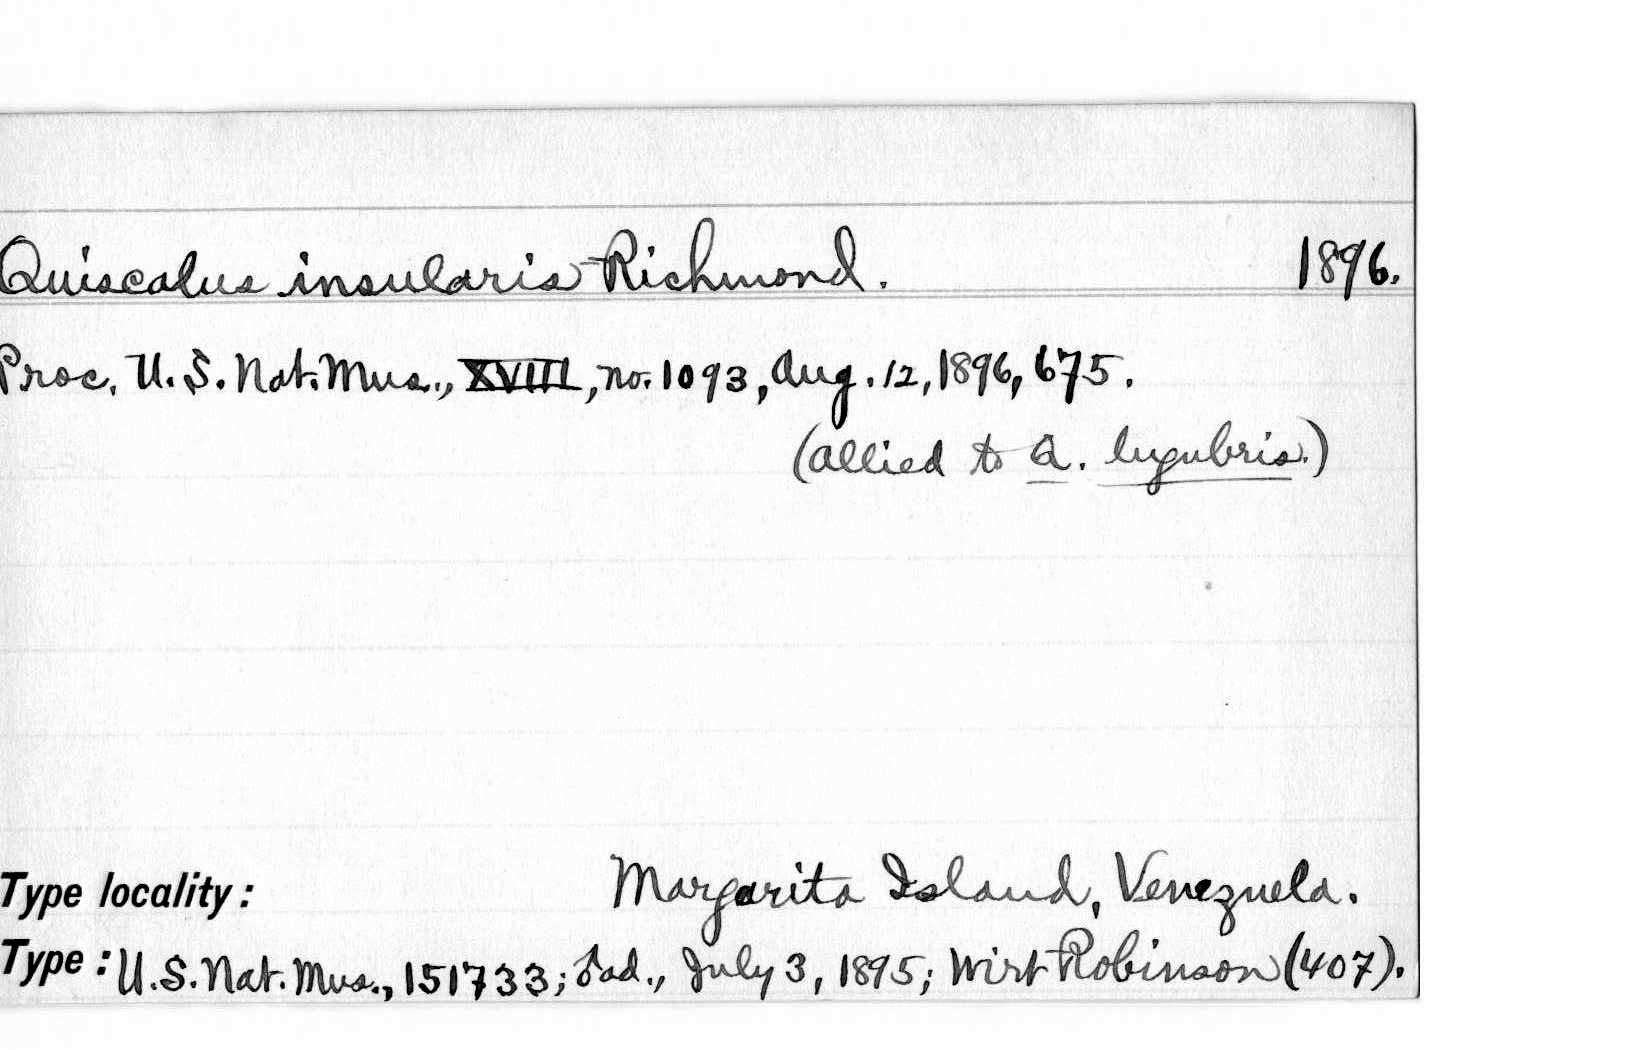 Quiscalus insularis Richmond. 1896.
Proc. U.S. Nat. Mus., XVIII, no. 1093, Aug. 12, 1896, 675.
(allied to Q. lugubris.)
Type locality: Margarita Island, Venezuela.
Type: U.S. Nat. Mus., 151733; ♂ad., July 3, 1895; Wirt Robinson (407).